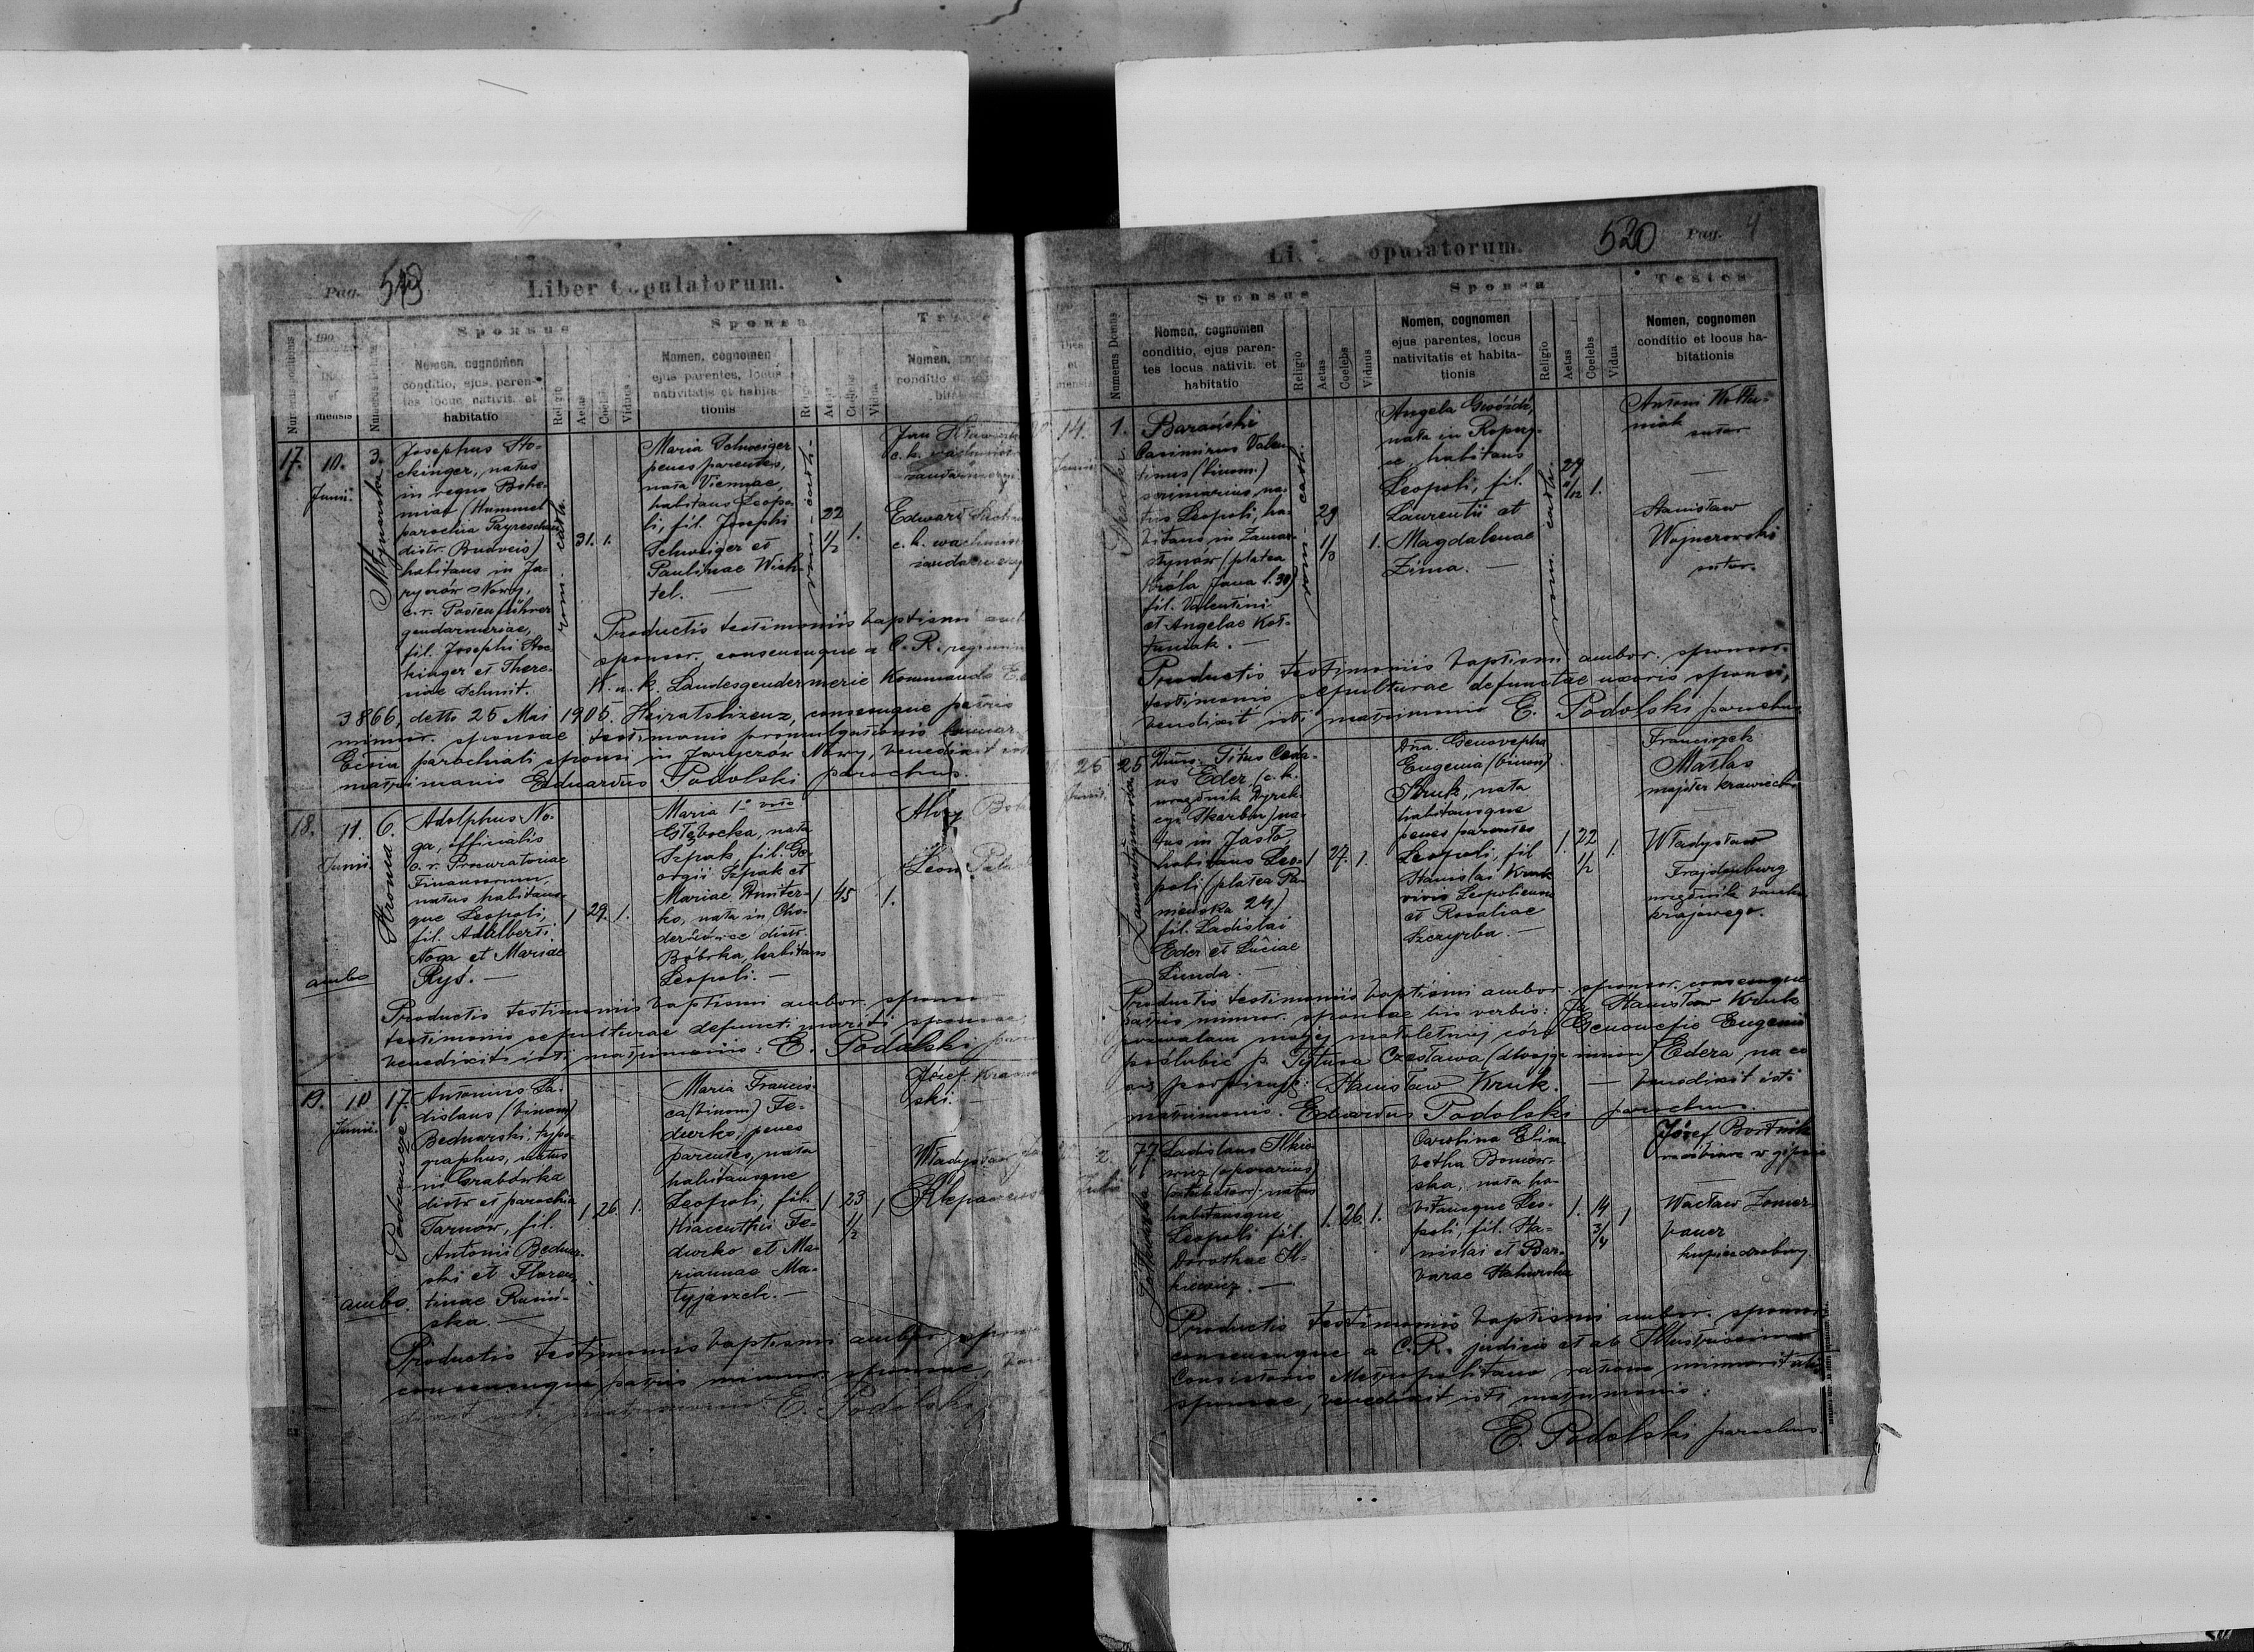 Pag. 519
Liber Copulatorum.
Numerus positionis
190
Dies
et
mensis
Sponsus
Nomen, cognomen
conditio, ejus paren-
tes locus nativit. et
habitatio
Religio
Aetas
Coelebs
Viduus
Sponsa
Nomen, cognomen
ejus parentes, locus
nativitatis et habita-
tionis
Religio
Aetas
Coelebs
Vidua
Nomen,
conditio
17.
10.
Junii.
3.
Młynarska
Josephus Sto-
ckinger, natus
in regno Bohe-
miae (Hummel
parochia Payreschau
distr. Budveis)
habitans in Ja-
ryczów Nowy,
c. r. Postenführer
gendarmeriae,
fil. Josephi Stoc-
kinger et There-
siae Schmit.
rom. cath.
31.
1.
Maria Schweiger
penes parentes,
nata Viennae,
habitans Leopo-
li, fil. Josephi
Schweiger et
Paulinae Wich-
tel. —
rom. cath.
22
1/2
1.
Jan
c. k.
Edward
c. k. wachmistrz
Productis testimoniis baptismi
sponsor. consensuque a C. R.
K. u. k. Landesgendarmerie Kommando
3866, detto 25 Mai 1905. Heiratslizenz, consensuque patris
minor. sponsae testimonio promulgationis
Eccia parochiali sponsi in Jaryczów Nowy, benedixit isti
matrimonio Eduardus Podolski parochus.
18.
11.
Junii.
6.
Stroma
Adolphus No-
ga, officialis
c. r. Procuratoriae
Finansorum
natus habitans-
que Leopoli,
fil. Adalberti
Noga et Mariae
Ryś. —
ambo
1
29.
1.
Maria 1º voto
Głębocka, nata
Szpak, fil. Ge-
orgii Szpak et
Mariae
nata in Cho-
distr.
Bóbrka, habitans
Leopoli. —
1
45
1.
Leon
Productis testimoniis baptismi ambor. sponsor.
testimonio sepulturae defuncti mariti sponsae
benedixit isti matrimonio: E. Podolski
19.
10
Junii.
17.
Antonius La-
dislaus (binom)
Bednarski, typo-
graphus, natus
in Grabówka
distr et parochia
Tarnów, fil.
Antonii Bednar-
ski et Floren-
tinae Rusiń-
ska. —
ambo.
1
26
1.
Maria Francis-
ca (binom) Fe-
durko, penes
parentes, nata
habitansque
Leopoli, fil.
Hiacenthii Fe-
durko et Ma-
riannae Ma-
tyjaszek. —
1
23
1/2
1
Józef
ski. —
Władysław
Productis testimoniis baptismi ambor.
consensuque patris minor. sponsae,
matrimonio: E. Podolski
520
Pag. 4
Numerus Domus
Sponsus
Nomen, cognomen
conditio, ejus paren-
tes locus nativit. et
habitatio
Religio
Aetas
Coelebs
Viduus
Sponsa
Nomen, cognomen
ejus parentes, locus
nativitatis et habita-
tionis
Religio
Aetas
Coelebs
Vidua
Testes
Nomen, cognomen
conditio et locus ha-
bitationis
14.
Junii
1.
Barański
Casimirus Valen-
tinus (binom.)
na-
tus Leopoli, ha-
bitans in Zamar-
stynów (platea
Króla Jana l. 39)
fil. Valentini
et Angelae Koł-
tuniak. —
rom. cath.
29
1/3
1.
Angela Gwóźdź,
nata in
habitans
Leopoli, fil.
Laurentii et
Magdalenae
Zima. —
rom. cath.
1.
Antoni Kołtu-
niak
sutor
—
Stanisław
sutor.
Productis testimoniis baptismi ambor. sponsor.
testimonio sepulturae defunctae uxoris sponsi,
benedixit isti matrimonio E. Podolski parochus
25
25
Dnus. Titus Ces-
us Eder (c. k.
urzędnik Dyrek-
cyi Skarbu) na-
tus in Jasło,
habitans Leo-
poli (platea Pa-
nieńska 24)
fil. Ladislai
Eder et Luciae
Lunda. —
1
27.
1.
Dna. Genovepha
Eugenia (binom)
Kruk, nata
habitansque
penes parentes
Leopoli, fil
Stanislai Kruk
civis Leopoliensis
et Rosaliae
Szczyrba. —
1.
22
1/2
1.
Franciszek
Matlas
majster krawiecki
—
Władysław
Frajdenberg
urzędnik banku
krajowego.
Productis testimoniis baptismi ambor. sponsor. consensuque
patris minor. sponsae his verbis: Ja Stanisław Kruk
pozwalam mojej małoletniej córce Genowefie Eugenii
poślubić p. Tytusa Czesława (dwojga imion) Edera na co
się podpisuję: Stanisław Kruk. — benedixit isti
matrimonio. Eduardus Podolski parochus.
2.
Julii
77.
Ladislaus Ilkie-
wicz (operarius)
natus
habitansque
Leopoli fil.
Dorotheae Il-
kiewicz. —
1.
26.
1.
Carolina Elisa-
betha Boniow-
ska, nata ha-
bitansque Leo-
poli, fil. Sta-
nislai et Bar-
barae
1.
14
3/4
1
Józef Bortnik
—
Wacław Zomer-
bauer
kupiec drobny
Productis testimoniis baptismi ambor. sponsor.
consensuque a C. R. judicio et ab Illustrissimo
Consistorio Metropolitano ratione minoritatis
sponsae, benedixit isti matrimonio:
E. Podolski parochus.